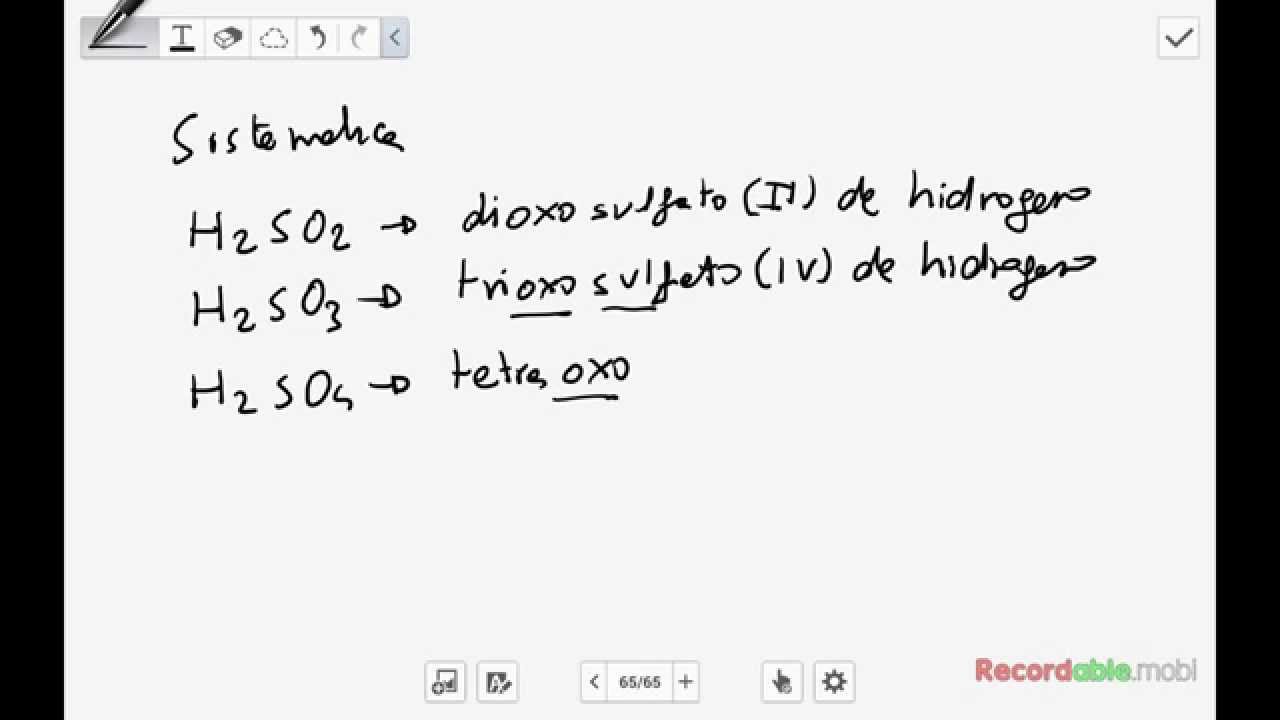 T
Sistematica
H2SO2 → dioxosulfato (II) de hidrogeno
H2SO3 → trioxosulfato (IV) de hidrogeno
H2SO4 → tetraoxo
65/65
Recordable.mobi